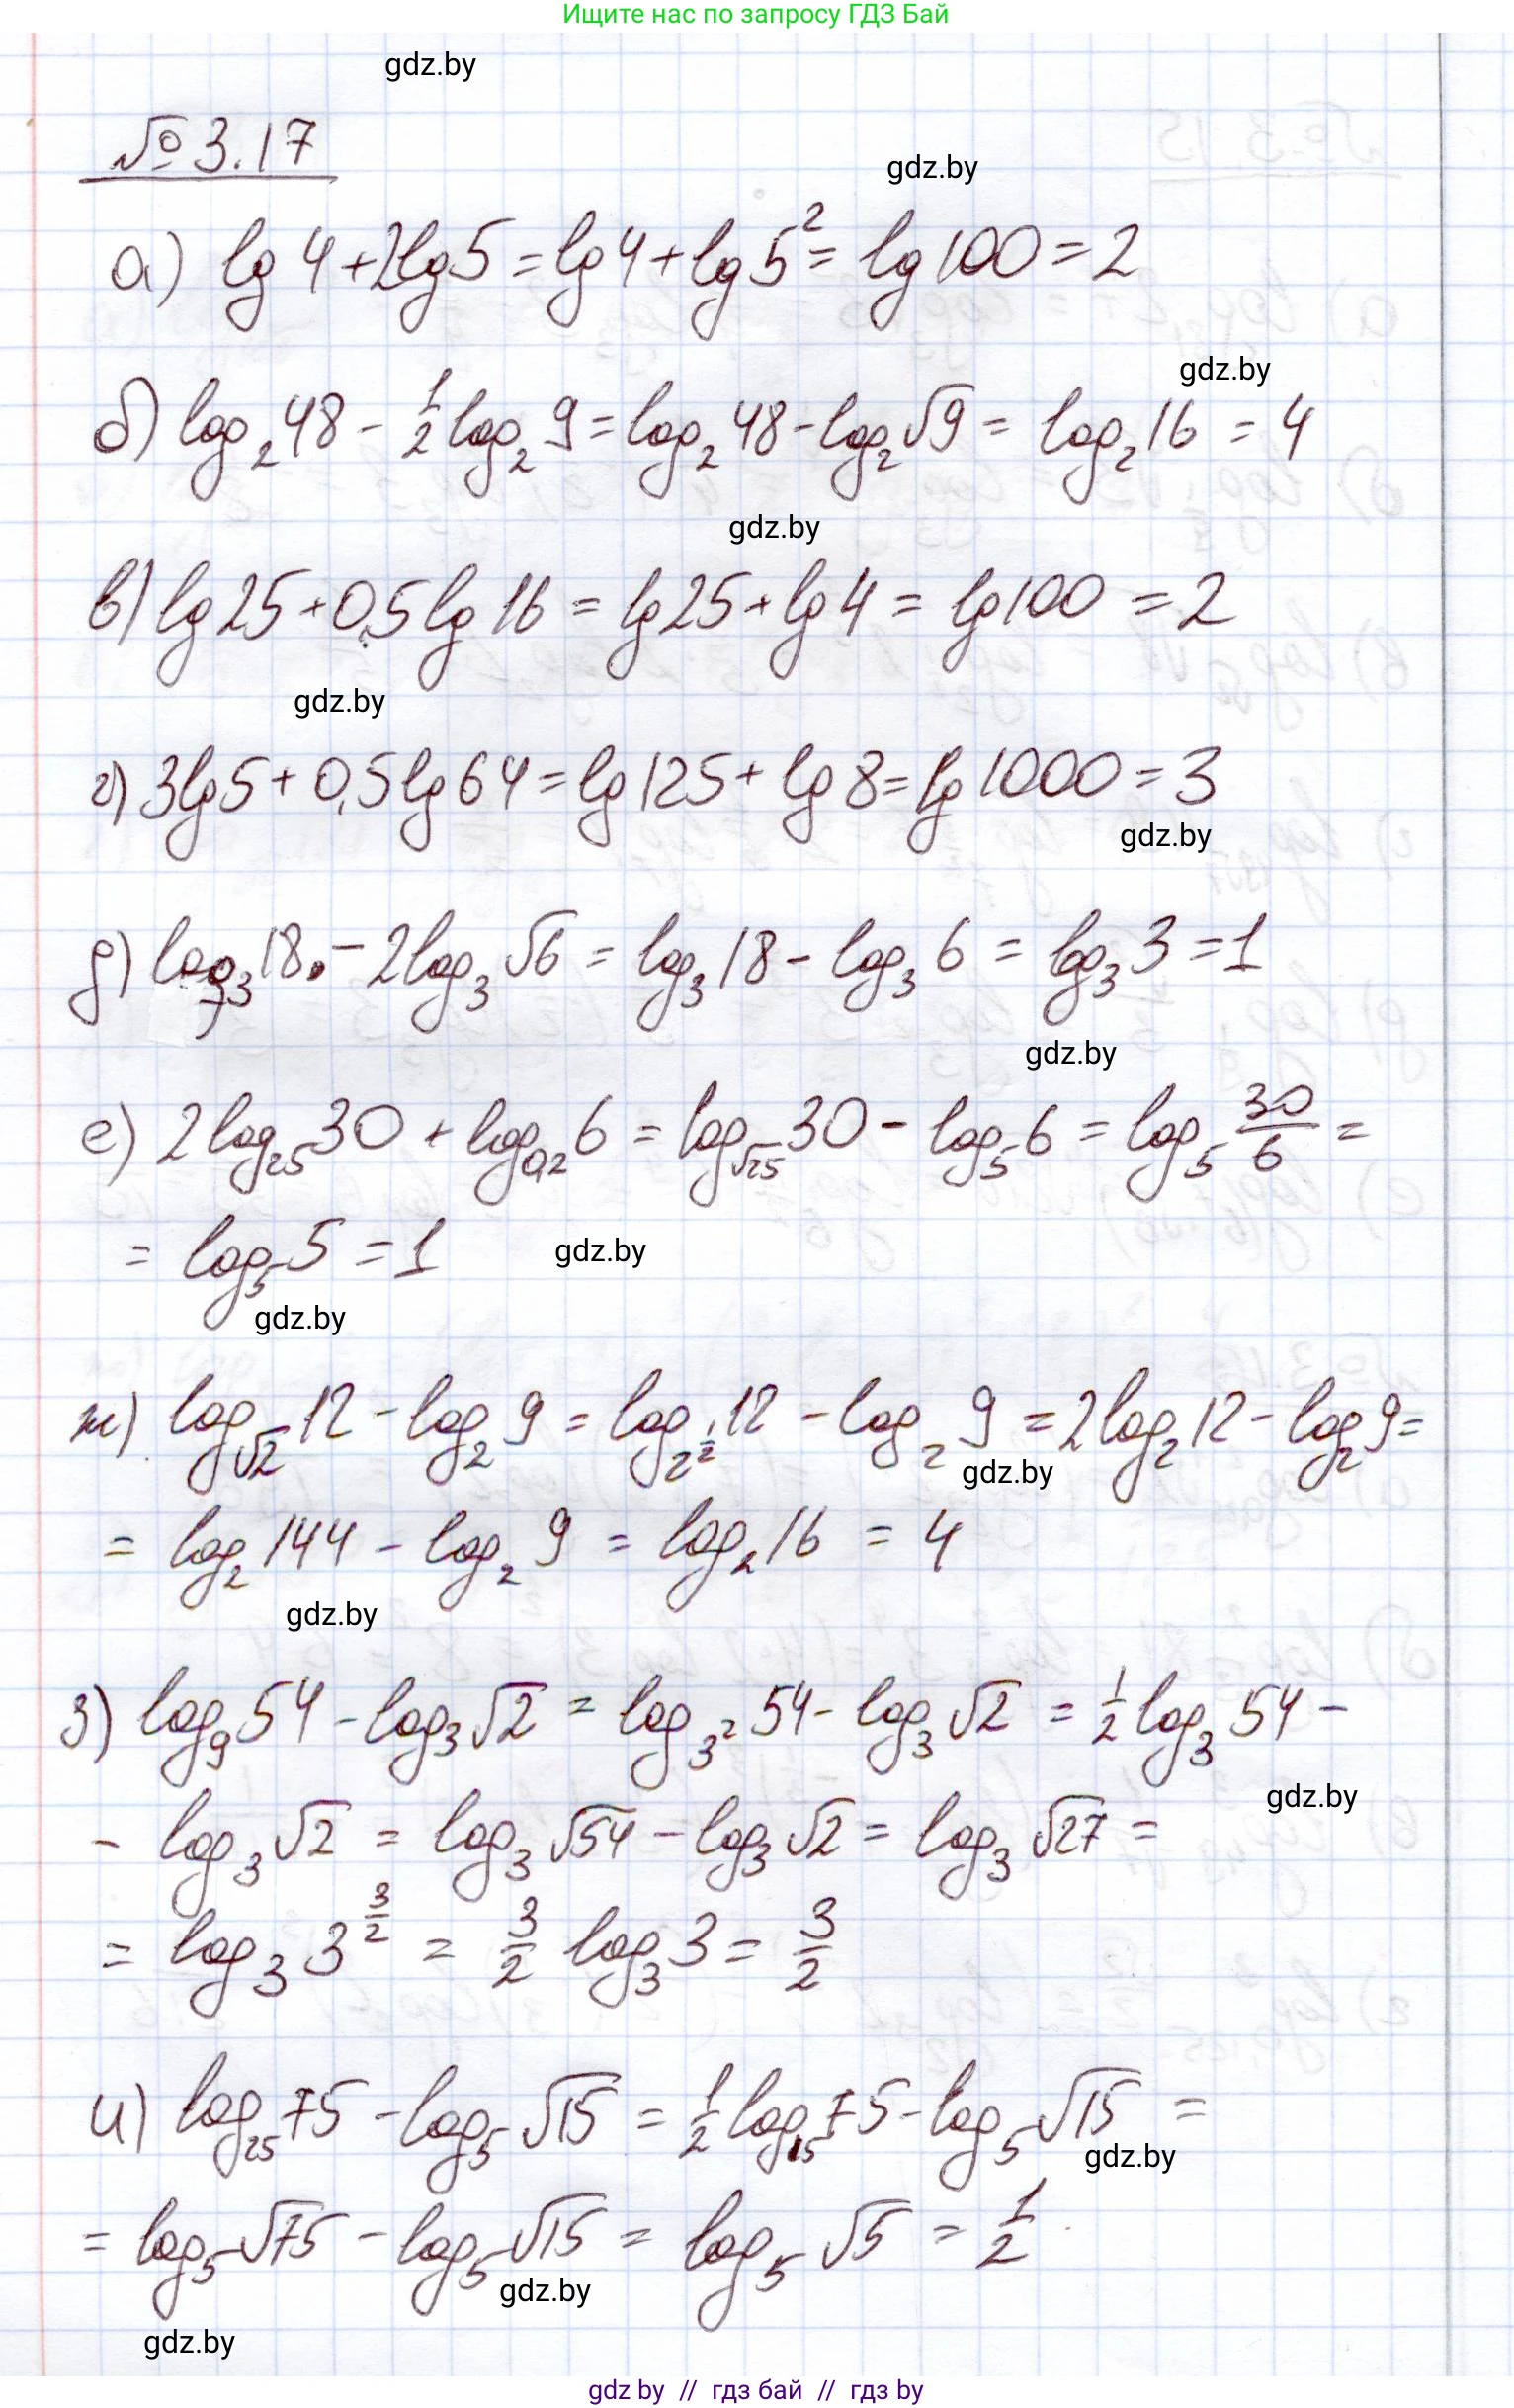 Ищите нас по запросу ГДЗ Бай
gdz.by
№ 3.17
gdz.by
а) lg 4 + 2lg 5 = lg 4 + lg 5² = lg 100 = 2
gdz.by
б) log₂ 48 - 1/2 log₂ 9 = log₂ 48 - log₂ √9 = log₂ 16 = 4
gdz.by
в) lg 25 + 0,5 lg 16 = lg 25 + lg 4 = lg 100 = 2
gdz.by
г) 3lg 5 + 0,5 lg 64 = lg 125 + lg 8 = lg 1000 = 3
gdz.by
д) log₃ 18 - 2log₃ √6 = log₃ 18 - log₃ 6 = log₃ 3 = 1
gdz.by
е) 2log₂₅ 30 + log_0,2 6 = log_√25 30 - log₅ 6 = log₅ 30/6 =
= log₅ 5 = 1
gdz.by
gdz.by
ж) log_√2 12 - log₂ 9 = log_2^(1/2) 12 - log₂ 9 = 2log₂ 12 - log₂ 9 =
gdz.by
= log₂ 144 - log₂ 9 = log₂ 16 = 4
gdz.by
з) log₉ 54 - log₃ √2 = log_3² 54 - log₃ √2 = 1/2 log₃ 54 -
gdz.by
- log₃ √2 = log₃ √54 - log₃ √2 = log₃ √27 =
= log₃ 3^(3/2) = 3/2 log₃ 3 = 3/2
и) log₂₅ 75 - log₅ √15 = 1/2 log₁₅ 75 - log₅ √15 =
gdz.by
= log₅ √75 - log₅ √15 = log₅ √5 = 1/2
gdz.by
gdz.by
gdz by // гдз бай // gdz by